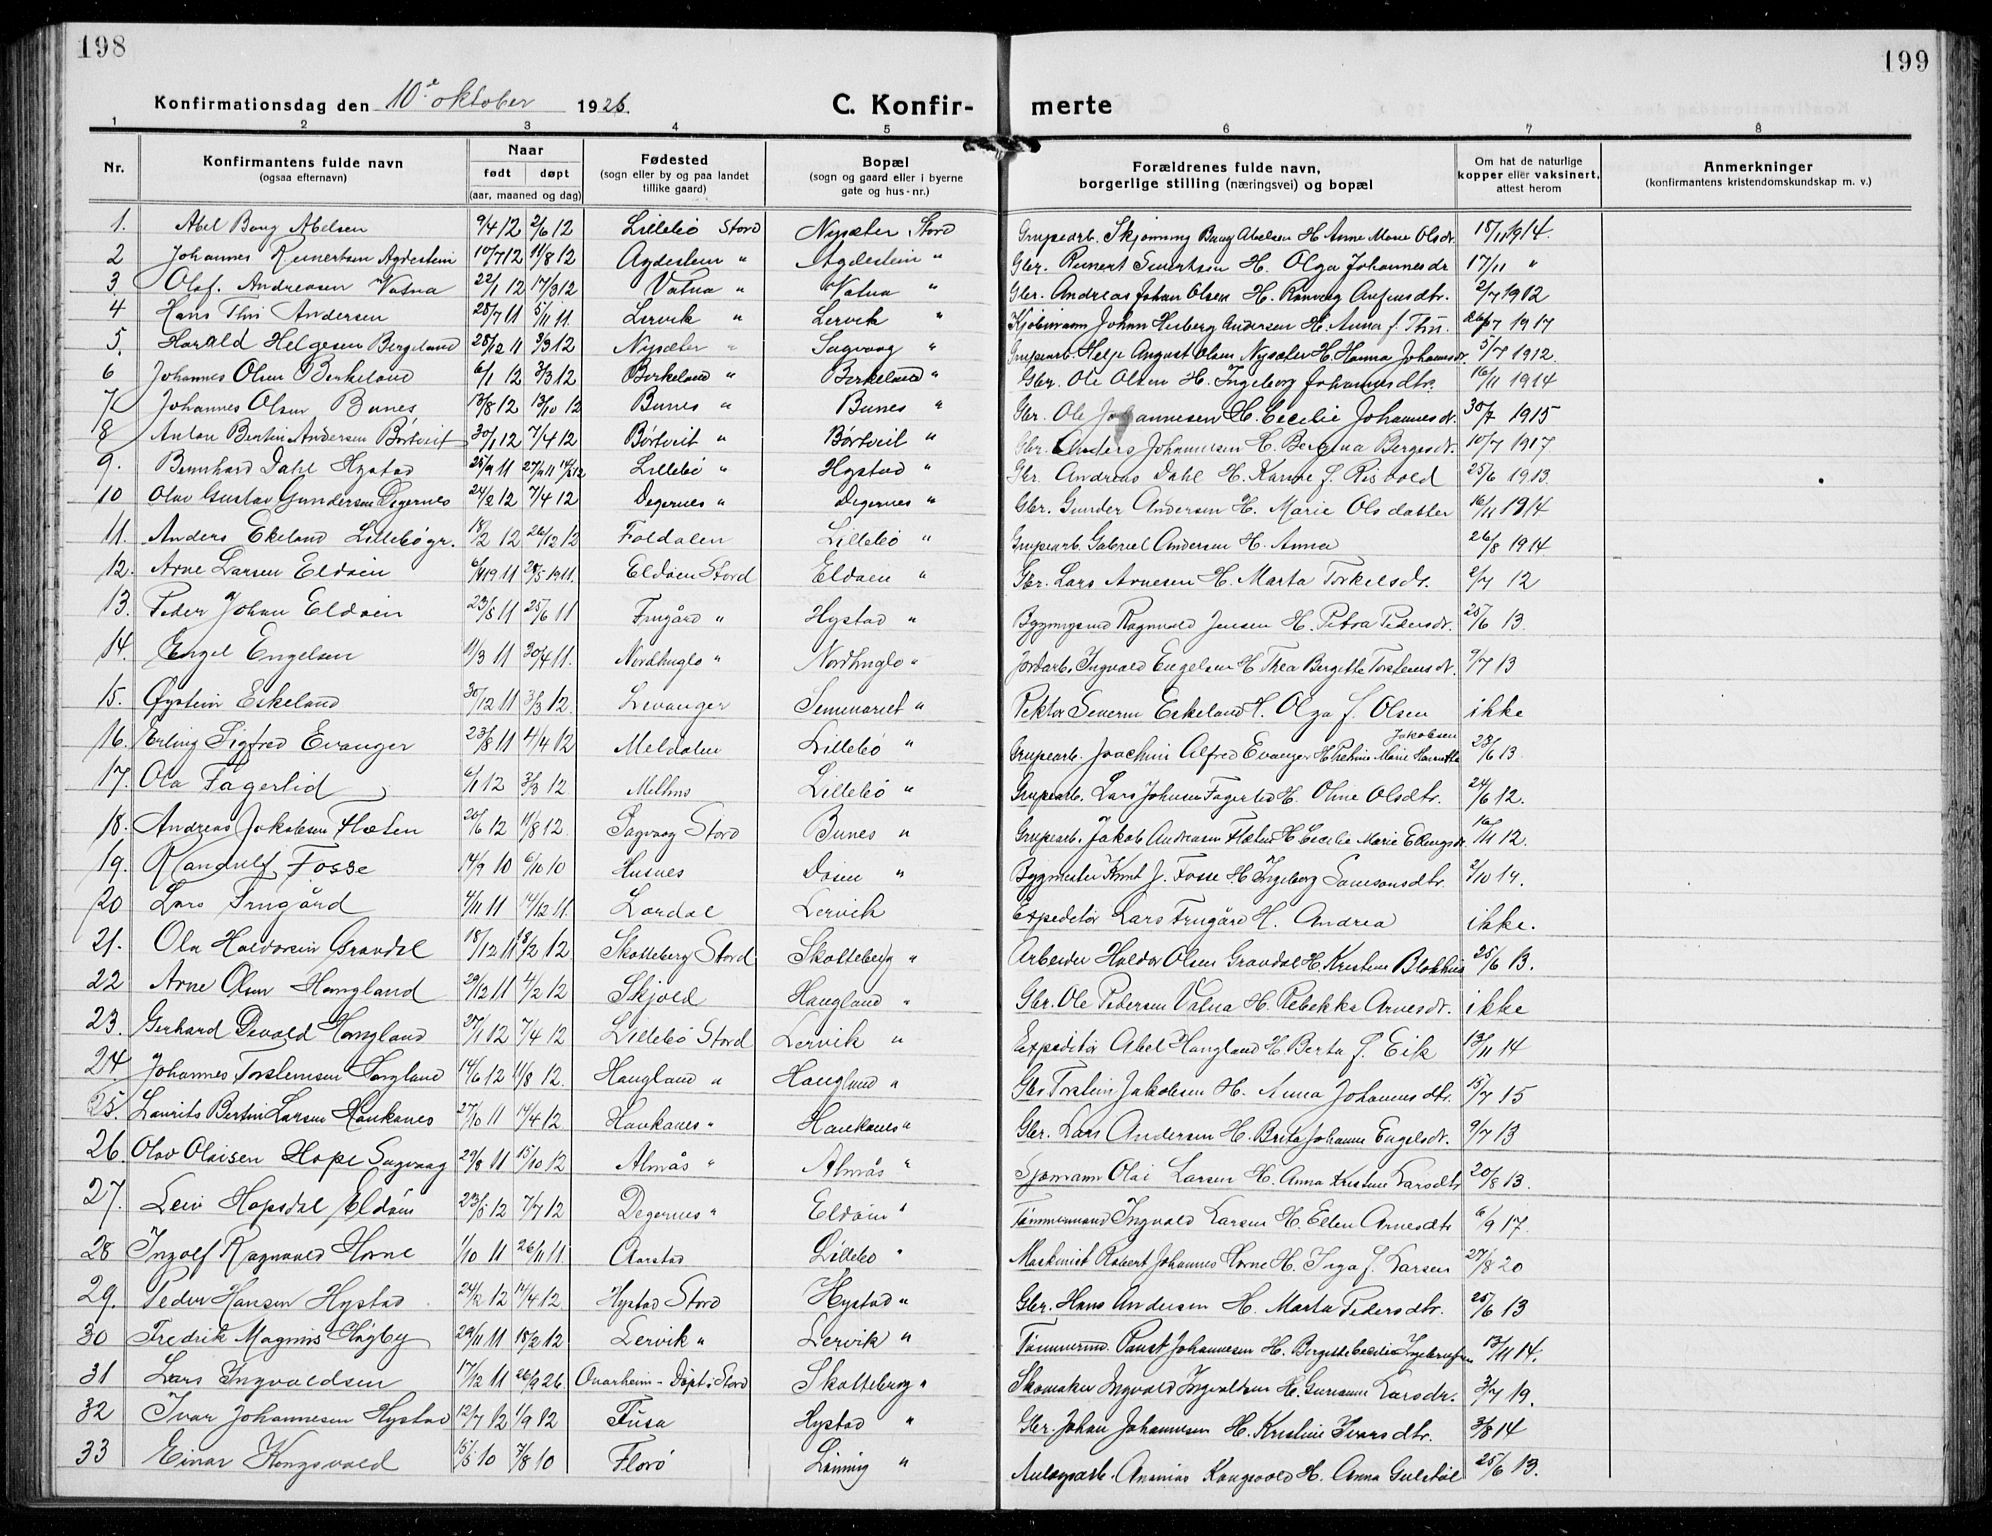 198
199
Konfirmationsdag den 10de oktober 1926.
C. Konfir- merte
1 2 3 4 5 6 7 8
Nr.
Konfirmantens fulde navn
(ogsaa efternavn)
Naar
født døpt
(aar, maaned og dag)
Fødested
(sogn eller by og paa landet
tillike gaard)
Bopæl
(sogn og gaard eller i byerne
gate og hus-nr.)
Forældrenes fulde navn,
borgerlige stilling (næringsvei) og bopæl
Om hat de naturlige
kopper eller vaksinert,
attest herom
Anmerkninger
(konfirmantens kristendomskundskap m. v.)
1. Abel Bang Abelsen 9/4 12 2/6 12 Lillebö Stord Nysæter Stord Grupearb. Skjönning Bang Abelsen H. Anne Marie Olsdr. 18/11 1914.
2 Johannes Reinertsen Agdestein 10/7 12 11/8 12 Agdestein " Agdestein " Gbr. Reinert Sivertsen H. Olga Johannesdr 17/11 "
3 Olaf Andreasen Vatna 22/1 12 17/3 12 Vatna " Vatna " Gbr. Andreas Johan Olsen H. Ranveig Aufinsdtr. 2/7 1912
4 Hans Thii Andersen 28/7 11 5/11 11. Lervik " Lervik " Kjøbmann Johan Herberg Andersen H. Anna f. Thii. 1917
5. Harald Helgesen Bergeland 28/12 11 3/3 12 Nysæter " Sagvaag " Grupearb. Helge August Olsen Nysæter H. Hanna Johannesdr. 5/7 1912.
6 Johannes Olsen Birkeland 6/1 12 3/3 12 Birkeland " Birkeland " Gbr. Ole Olsen H. Ingeborg Johannesdtr. 16/11 1914
7 Johannes Olsen Bunes 13/8 12 13/10 12 Bunes " Bunes " Gbr. Ole Johannesen H. Cecilie Johannesdr. 30/7 1915
8 Anton Bertin Andersen Börtveit 30/1 12 7/4 12 Börtveit " Börtveit " Gbr. Anders Johannesen H. Bergina Bergesdr. 10/7 1917
9. Bernhard Dahl Hystad 25/9 11 27/9 11 Lillebö " Hystad " Gbr. Andreas Dahl H. Karine f. Risvold 25/6 1913.
10 Olav Gustav Gundersen Degernes 24/2 12 7/4 12 Degernes " Degernes " Gbr. Gunder Andersen H. Marie Olsdatter 16/11 1914
11. Anders Ekeland Lillebögr. 18/2 12 26/12 12 Foldalen Lillebö " Grupearb. Gabriel Andersen H. Anna 26/8 1914
12. Arne Larsen Eldöen 6/4 1911 28/5 1911. Eldöen Stord Eldöen " Gbr. Lars Arnesen H. Marta Torkelsdr. 2/7 12
13. Peder Johan Eldöen 23/8 11 25/6 11 Frugård " Hystad " Bygningsmd Ragnvald Jensen H. Petra Pedersdr. 25/6 13.
14. Engel Engelsen 11/3 11 30/4 11. Nordhuglo " Nordhuglo " Jordarb. Ingvald Engelsen H. Thea Bergitte Torsteinsdr. 9/7 13
15. Øystein Eskeland 30/12 11 3/3 12. Levanger Seminariet " Rektor Severin Eskeland H. Olga f. Olsen ikke
16. Erling Sigfred Evanger 23/8 11 4/4 12 Meldalen Lillebö " Grupearb. Joachim Alfred Evanger H. Petrine Marie Henrette Jakobsen 23/6 13.
17. Ola Fagerlid 6/1 12 3/3 12 Melhus Lillebö " Grupearb. Lars Johnsen Fagerlid H. Oline Olsdtr. 24/6 12.
18. Andreas Jakobsen Flæten 20/6 12 11/8 12. Sagvaag Stord Bunes " Grupearb. Jakob Andreasen Flæten H. Cecilie Marie Ellingsdr. 16/11 12.
19. Randulf Fosse 14/9 10 6/10 10 Husnes Döien " Bygmester Knut J. Fosse H. Ingeborg Samsonsdtr. 2/10 14.
20 Lars Frugård 4/11 11 14/12 11. Lardal Lervik Expeditör Lars Frugård H. Andrea ikke.
21. Ola Haldorsen Gravdal 18/12 11 18/2 12 Skotteberg Stord Skotteberg " Arbeider Haldor Olsen Gravdal H. Kristine Blokhus 25/6 13.
22 Arne Olsen Haugland 29/12 11 4/2 12 Skjold Haugland " Gbr. Ole Pedersen Vatna H. Rebekka Arnesdr. ikke
23. Gerhard Devald Haugland 27/1 12 7/4 12 Lillebö Stord Lervik " Expeditör Abel Haugland H. Berta f. Eik 13/11 14
24 Johannes Torsteinsen Haugland 14/6 12 11/8 12. Haugland " Haugland " Gbr Torstein Jakobsen H. Anna Johannesdtr. 15/7 15
25. Laurits Bertin Larsen Haukanes 27/10 11 14/4 12 Haukanes " Haukanes " Gbr. Lars Andersen H. Brita Johanne Engelsdr. 9/7 13
26. Olav Olaisen Hope Sagvaag 29/8 11 15/10 12 Almås " Almås " Sjömann Olai Larsen H. Anna Kristine Larsdtr 20/8 13.
27. Leiv Hopsdal Eldöin 23/5 12 7/7 12 Degernes " Eldöin " Tömmermand Ingvald Larsen H. Ellen Arnesdtr 6/9 17.
28 Ingolf Ragnvald Horne 1/10 11 26/11 11. Aarstad Lillebö " Maskinist Robert Johannes Horne H. Inga f. Larsen 27/8 20
29. Peder Hansen Hystad 24/2 12 14/4 12 Hystad Stord Hystad " Gbr. Hans Andersen H. Marta Pedersdtr. 25/6 13
30 Fredrik Magnus Högby 29/11 11 18/2 12 Lervik " Lervik " Tömmermd. Paust Johannesen H. Bergitte Cecilie Ingebrigtsen 13/11 14.
31 Lars Ingvaldsen 17/12 11 26/9 26. Qvarheim - Döpt i Stord Skotteberg " Skomaker Ingvald Ingvaldsen H. Gurianna Larsdr. 3/7 19.
32 Ivar Johannesen Hystad 12/7 12 1/9 12 Fusa Hystad " Gbr. Johan Johannesen H. Kristine Ivarsdtr. 3/8 14
33 Einar Kongsvold 15/5 10 7/8 10 Florö Lönning " Anlægsarb. Ananias Kongsvold H. Anna Gulstöl 25/6 13.